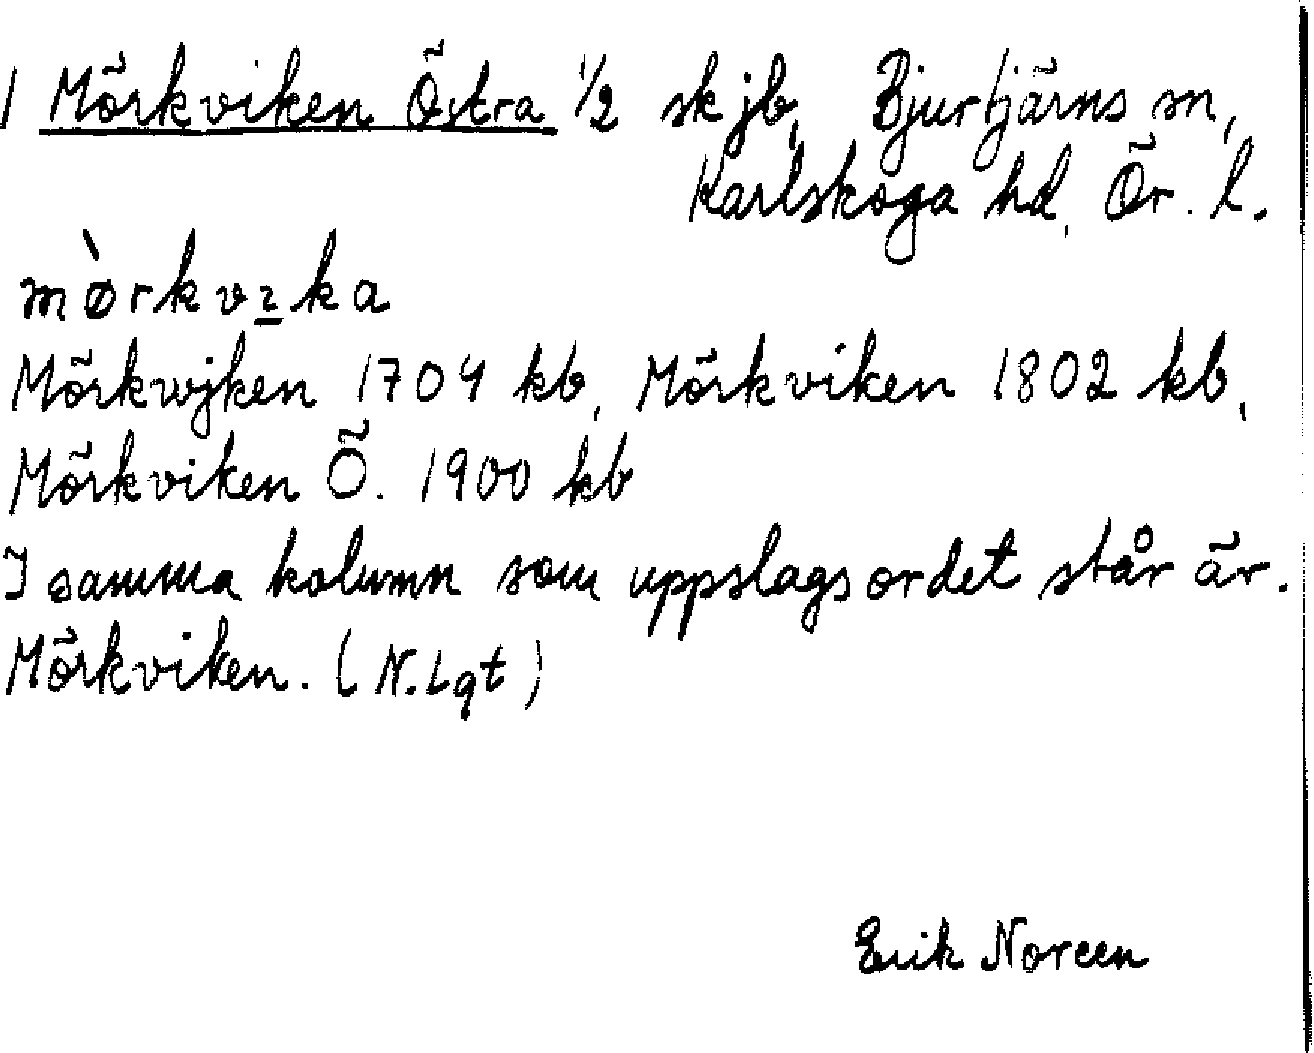 1 Mörkviken Östra 1/2 sk jb, Bjurtjärns sn,
Karlskoga hd, Ör. l.
mø̀rkvıka
Mörkwjken 1704 kb, Mörkviken 1802 kb,
Mörkviken Ö. 1900 kb
I samma kolumn som uppslagsordet står är.
Mörkviken. (N.Lqt)
Erik Noreen